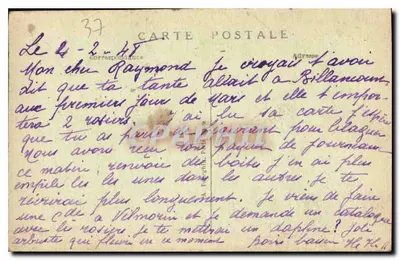 37
CARTE POSTALE
Correspondance Adresse
Le 2-2-48
Mon cher Raymond Je croyais t'avoir
dit que ta tante allait à Billancourt
aux premiers jours de Mars et elle t'empor-
tera 2 rosiers. J'ai lu sa carte
que tu as
Nous avons reçu ton paquet de journaux
ce matin, renvoie des boîtes j'en ai plus
empile les les unes dans les autres. Je te
récrirai plus longuement. Je viens de faire
une Cde à Vilmorin et je demande un catalogue
avec les rosiers je te mettrai un daphné? Joli
arbustes qui fleurit en ce moment bons baisers